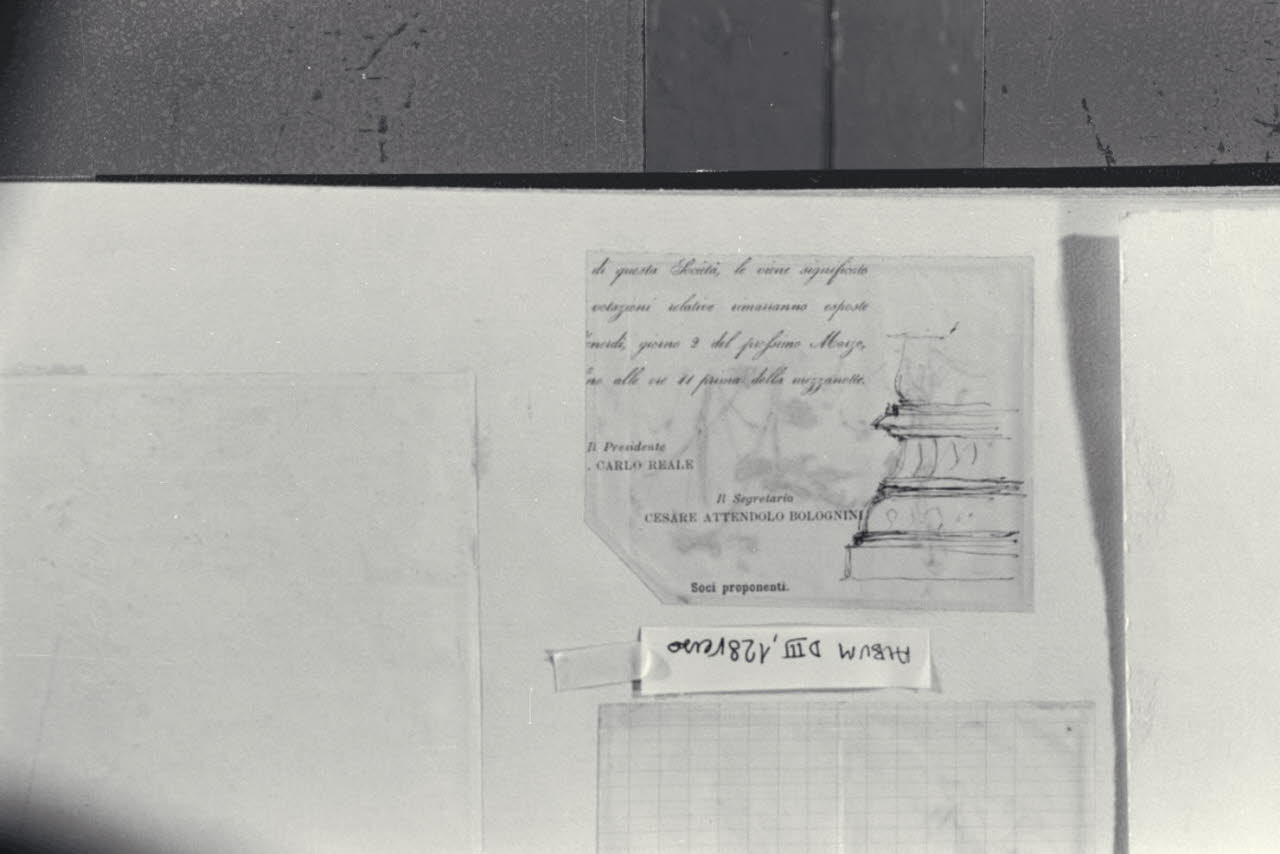 di questa Società, le viene significato
votazioni relative rimarranno esposte
enerdì, giorno 2 del prossimo Marzo,
no alle ore 11 prima della mezzanotte.
Il Presidente
. CARLO REALE
Il Segretario
CESARE ATTENDOLO BOLOGNINI
Soci proponenti.
ALBUM DIII, 128 verso